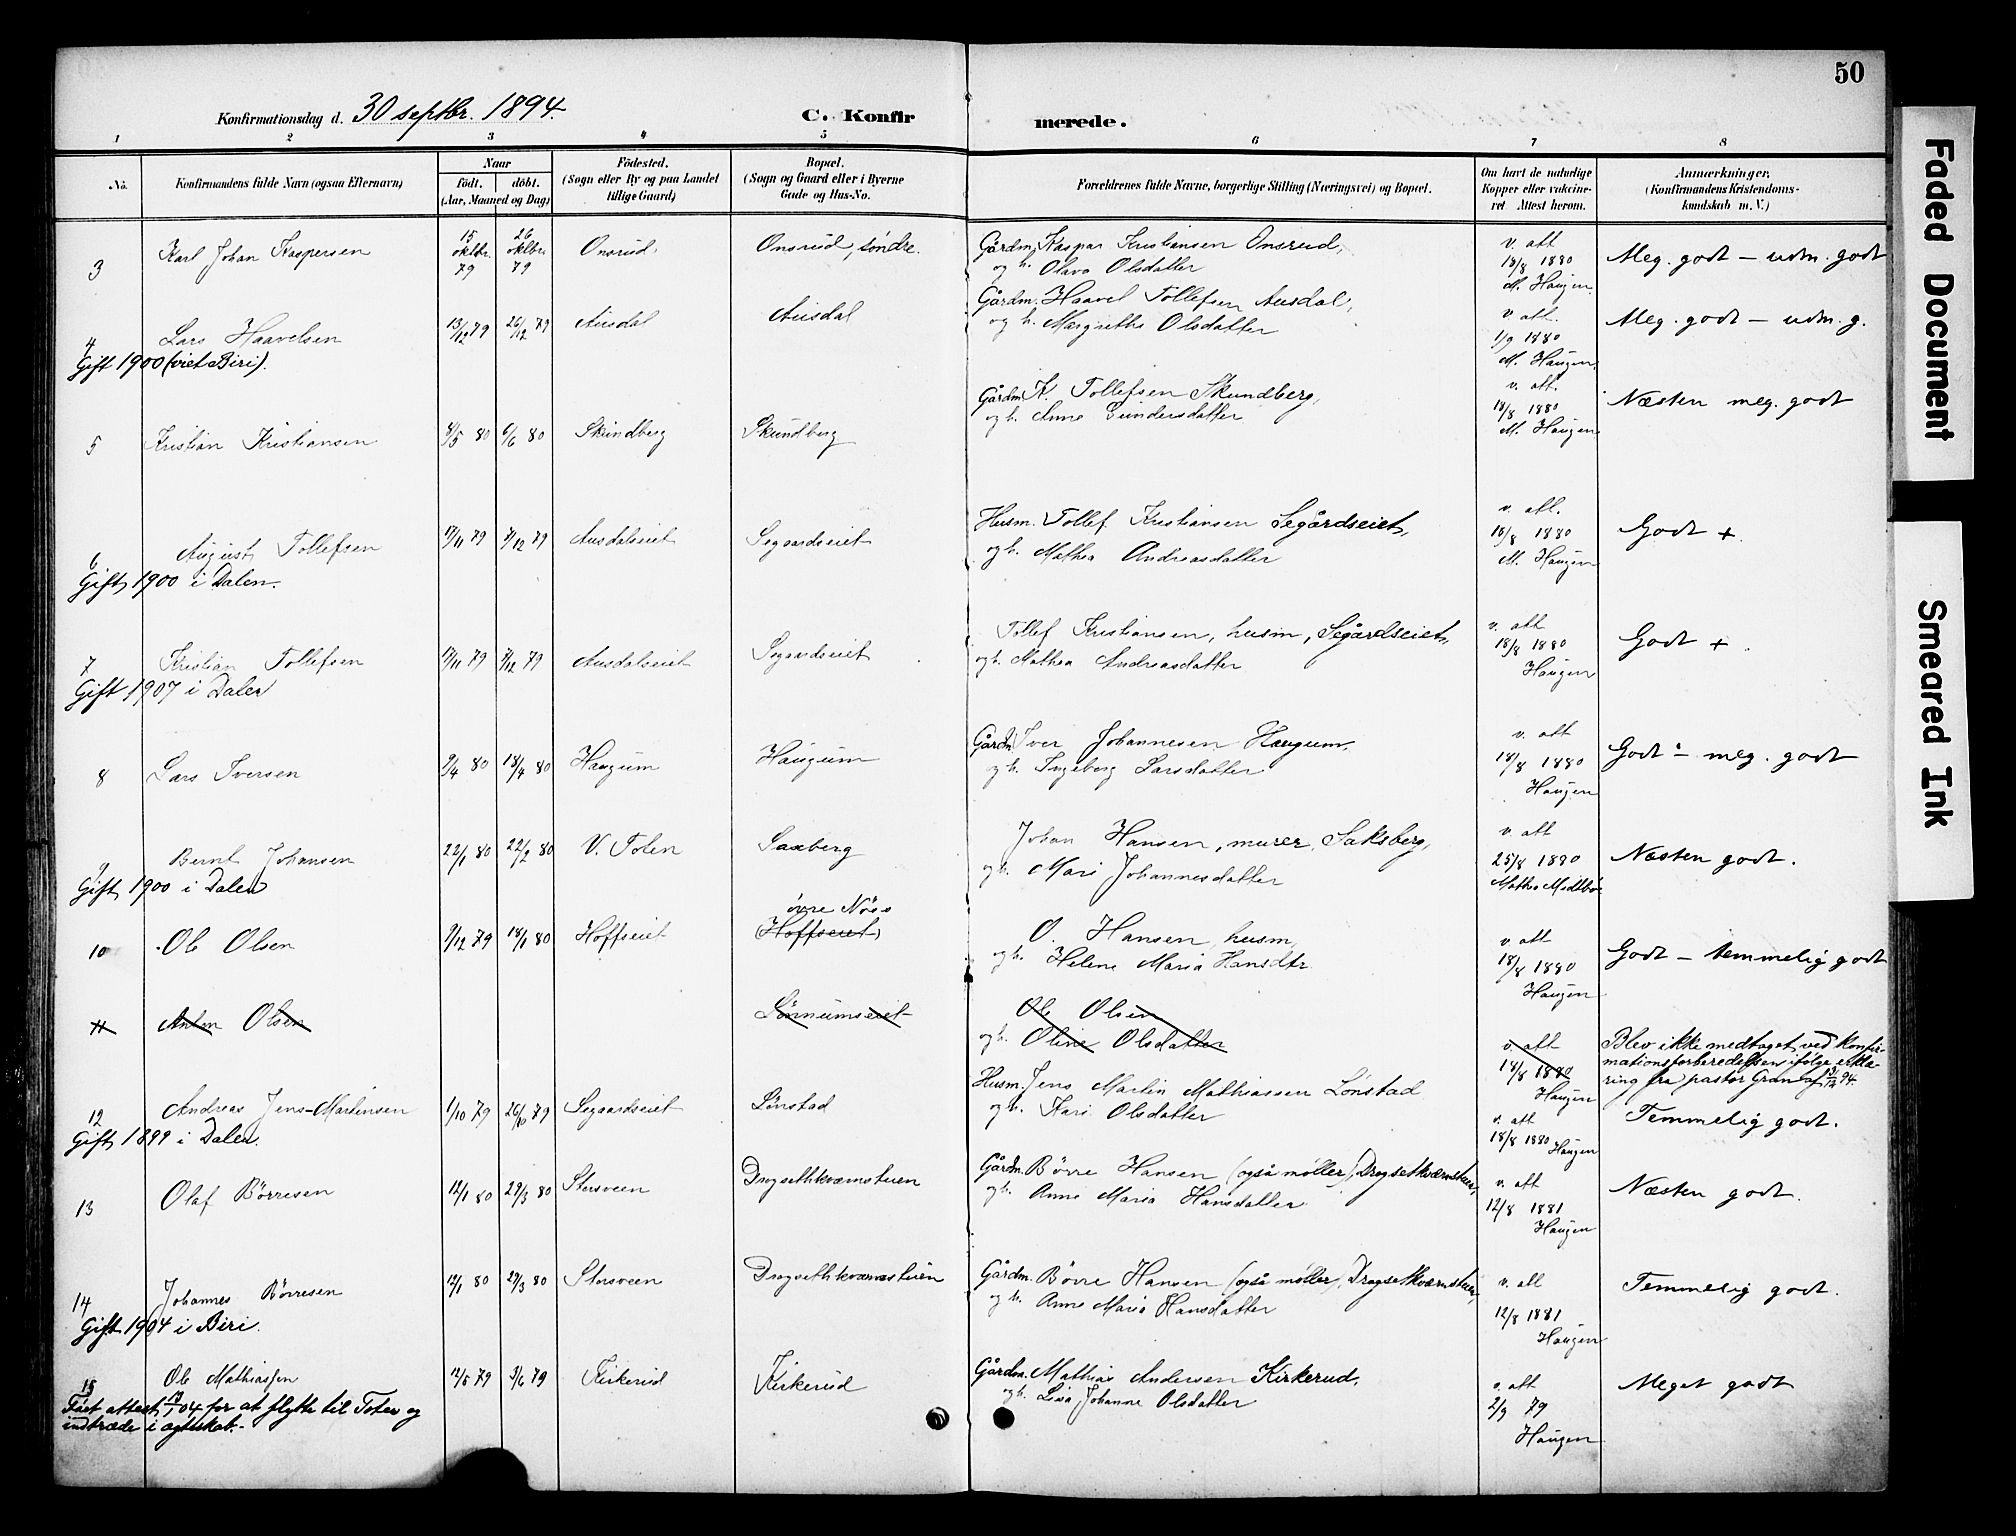 50
Konfirmationsdag d. 30 septbr. 1894.
C. Konfirmerede.
1 2 3 4 5 6 7 8
No. Konfirmandens fulde Navn (ogsaa Efternavn) Naar födt. döbt. (Aar, Maaned og Dag) Födested. (Sogn eller By og paa Landet tillige Gaard) Bopæl. (Sogn og Gaard eller i Byerne Gade og Hus-No. Forældrenes fulde Navne, borgerlige Stilling (Næringsvei) og Bopæl. Om havt de naturlige Kopper eller vakcineret. Attest herom. Anmærkninger, (Konfirmandens Kristendomskundskab m. V.)
3 Karl Johan Kaspersen 15 oktbr. 79 26 oktbr. 79 Onsrud Onsrud, søndre. Gårdm. Kaspar Kristiansen Onsrud, og h. Olava Olsdatter v. att 18/8 1880 M. Haugen Meg. godt – udm. godt
4 Lars Haavelsen 13/12 79 26/12 79 Ausdal Ausdal Gårdm. Haavel Tollefsen Ausdal, og h. Margrethe Olsdatter v. att. 1/9 1880 M. Haugen Meg. godt – udm. g.
Gift 1900 (viet Biri).
5 Kristian Kristiansen 8/5 80 6/6 80 Skundberg Skundberg Gårdm. K. Tollefsen Skundberg, og h. Anne Gundersdatter v. att. 18/8 1880 M. Haugen Næsten meg. godt
6 August Tollefsen 17/11 79 7/12 79 Ausdalseiet Segaardseiet Husm. Tollef Kristiansen Segårdseiet, og h. Mathea Andreasdatter v. att. 18/8 1880 M. Haugen Godt +
Gift 1900 i Dalen.
7 Kristian Tollefsen 17/11 79 7/12 79 Ausdalseiet Segaardseiet Tollef Kristiansen, husm, Segårdseiet, og h. Mathea Andreasdatter v. att 18/8 1880 Haugen Godt +
Gift 1907 i Dalen
8 Lars Iversen 9/4 80 18/4 80 Haugum Haugum Gårdm. Iver Johannesen Haugum, og h. Ingeborg Larsdatter v. att 18/8 1880 Haugen Godt – meg. godt
9 Bernt Johansen 22/1 80 22/2 80 V. Toten Saxberg Johan Hansen, murer, Saksberg, og h. Mari Johannesdatter v. att 25/8 1880 Mathea Midtbø Næsten godt.
Gift 1900 i Dalen
10 Ole Olsen 9/12 79 18/1 80 Hoffseiet øvre Nøss (Hoffseiet) O. Hansen, husm, og h. Helene Maria Hansdtr. v. att 18/8 1880 Haugen Godt – temmelig godt
11 Anton Olsen Lønnumseiet Ole Olsen og h. Oline Olsdatter v. att 18/8 1880 Haugen Blev ikke medtaget ved konfirmationsforberedelsen ifølge erklæring fra pastor Gran af
12 Andreas Jens-Martinsen 1/10 79 26/10 79 Segaardseiet Lønstad Husm. Jens Martin Mathiassen Lönstad og h. Kari Olsdatter v. att 18/8 1880 Haugen Temmelig godt.
Gift 1899 i Dalen.
13 Olaf Børresen 12/1 80 29/3 80 Storsveen Dragsethkværnstuen Gårdm. Børre Hansen (også møller), Dragsetkværnstuen, og h. Anne Maria Hansdatter v. att 12/8 1881 Haugen Næsten godt.
14 Johannes Børresen 12/1 80 29/3 80 Storsveen Dragsethkværnstuen Gårdm. Børre Hansen (også møller), Dragsetkværnstuen, og h. Anne Maria Hansdatter v. att 12/8 1881 Haugen Temmelig godt.
Gift 1904 i Biri.
15 Ole Mathiassen 12/5 79 3/6 79 Kirkerud Kirkerud Gårdm. Mathias Andersen Kirkerud, og h. Lisa Johanne Olsdatter v. att 2/9 79 Haugen Meget godt
Fået attest 04 for at flytte til Toten og
indtræde i ægteskab.
Faded Document
Smeared Ink